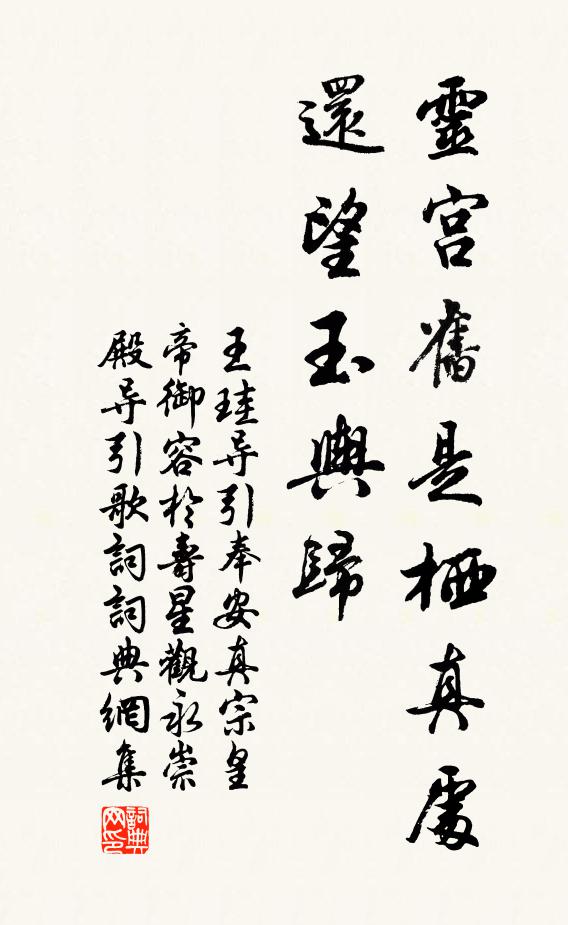 靈宮舊是栖真處
還望玉輿歸
王珪导引奉安真宗皇
帝御容於壽星觀永崇
殿导引歌詞詞典網集
詞典网印